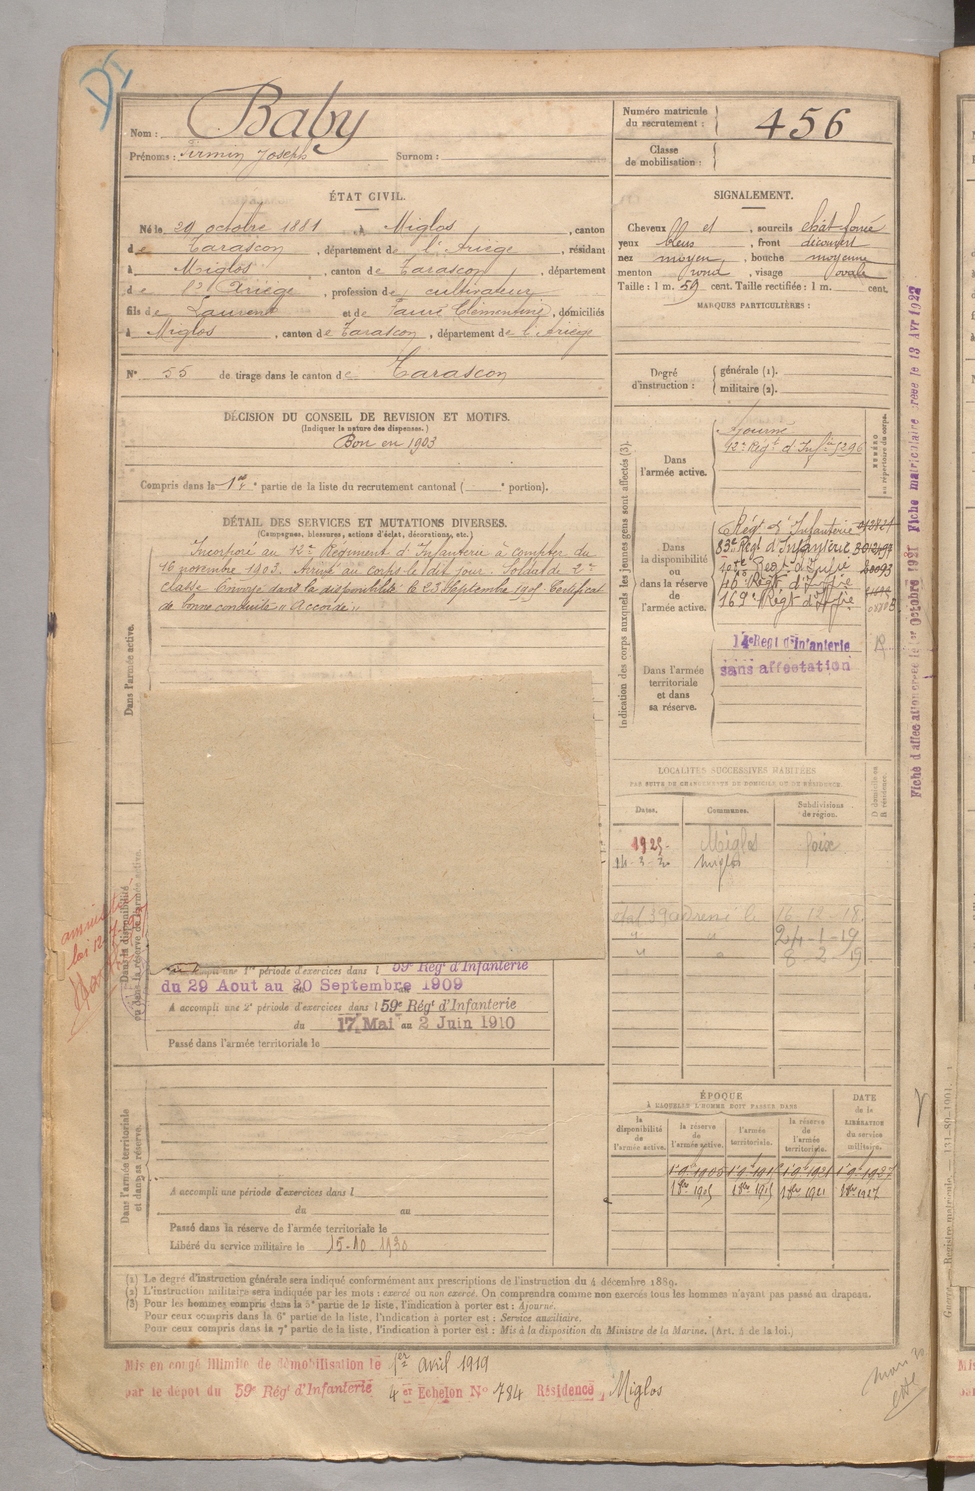 Nom : Baby
Prénoms : Firmin Joseph Surnom :
Numéro matricule
du recrutement : 456
Classe
de mobilisation :
ÉTAT CIVIL.
Né le 29 octobre 1881, à Miglos, canton
de Tarascon, département de l'Ariège, résidant
à Miglos, canton de Tarascon, département
de l'Ariège, profession de cultivateur
fils de Laurent et de Faure Clémentine, domiciliés
à Miglos, canton de Tarascon, département de l'Ariège
N° 55 de tirage dans le canton de Tarascon
SIGNALEMENT.
Cheveux et, sourcils chât foncé
yeux bleus, front découvert
nez moyen, bouche moyenne
menton rond, visage ovale
Taille : 1 m. 59 cent. Taille rectifiée : 1 m. cent.
MARQUES PARTICULIÈRES :
Degré
d'instruction :
générale (1).
militaire (2).
DÉCISION DU CONSEIL DE REVISION ET MOTIFS.
(Indiquer la nature des dispenses.)
Bon en 1903
Compris dans la 1re partie de la liste du recrutement cantonal ( portion).
DÉTAIL DES SERVICES ET MUTATIONS DIVERSES.
(Campagnes, blessures, actions d'éclat, décorations, etc.)
Dans l'armée active.
Incorporé au 12e Régiment d'Infanterie à compter du
16 novembre 1903. Arrivé au corps le dit jour. Soldat de 2e
classe. Envoyé dans la disponibilité le 23 Septembre 1905. Certificat
de bonne conduite "Accordé"
Indication des corps auxquels les jeunes gens sont affectés (3).
Dans
l'armée active.
Ajourné
12e Régt d'Infie 5296
NUMÉRO
au répertoire du corps.
Dans
la disponibilité
ou
dans la réserve
de
l'armée active.
Régt d'Infanterie
83e Régt d'Infanterie
Régt d'Infie
46e Régt d'Infie
169e Régt d'Infie
Dans l'armée
territoriale
et dans
sa réserve.
14e Regt d'Infanterie
sans affectation
LOCALITÉS SUCCESSIVES HABITÉES
PAR SUITE DE CHANGEMENTS DE DOMICILE OU DE RÉSIDENCE.
Dates. Communes. Subdivisions
de région. D domicile ou
R résidence.
1925 Miglos foix
14-3-2 Miglos
16-12-18
" " 24-1-19
" " 8-2-19
Dans la disponibilité
ou dans la réserve de l'armée active.
amnistié
loi 12-7-
A accompli une 1re période d'exercices dans l 59e Régt d'Infanterie
du 29 Aout au 20 Septembre 1909
A accompli une 2e période d'exercices dans l 59e Régt d'Infanterie
du 17 Mai au 2 Juin 1910
Passé dans l'armée territoriale le
Dans l'armée territoriale
et dans sa réserve.
A accompli une période d'exercices dans l
du au
Passé dans la réserve de l'armée territoriale le
Libéré du service militaire le 15-10-1930
ÉPOQUE
À LAQUELLE L'HOMME DOIT PASSER DANS
la
disponibilité
de
l'armée active.
la réserve
de
l'armée active.
l'armée
territoriale.
la réserve
de
l'armée
territoriale.
DATE
de la
LIBÉRATION
du service
militaire.
(1) Le degré d'instruction générale sera indiqué conformément aux prescriptions de l'instruction du 4 décembre 1889.
(2) L'instruction militaire sera indiquée par les mots : exercé ou non exercé. On comprendra comme non exercés tous les hommes n'ayant pas passé au drapeau.
(3) Pour les hommes compris dans la 5e partie de la liste, l'indication à porter est : Ajourné.
Pour ceux compris dans la 6e partie de la liste, l'indication à porter est : Service auxiliaire.
Pour ceux compris dans la 7e partie de la liste, l'indication à porter est : Mis à la disposition du Ministre de la Marine. (Art. 4 de la loi.)
Mis en congé illimité de démobilisation le 1er avril 1919
par le dépôt du 59e Régt d'Infanterie 4er Echelon N° 794 Résidence, Miglos